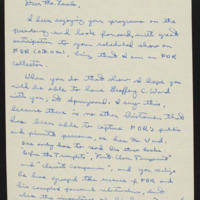 Dear Mr. Lamb,
I been enjoying your programs on the
presidency and look forward, with great
anticipation to your scheduled show on
FDR (OCT. NOV.) being that I am an FDR
Collector.
When you do that show I hope you
will be able to have Geoffrey C. Ward
with you, it spurred. I say this,
because there is no other historian that
has been able to capture FDR's public
and private persona, as has Mr. Ward.
One only has to read his two books
"Before the Trumpet", "First Class Temperament"
and "Closest Companion", and you realize
he has grasped the essence of FDR and
his complex personal relationships, but